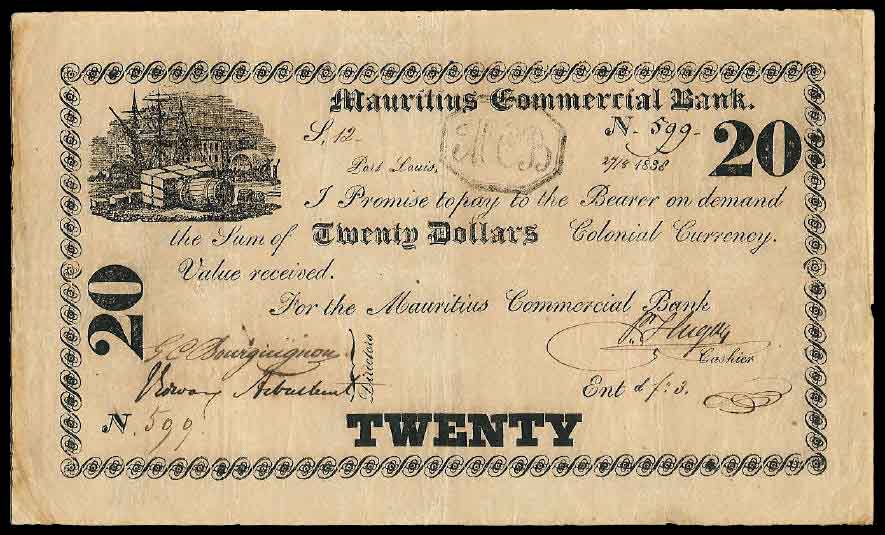 Mauritius Commercial Bank.
S, 12
N. 599
20
MCB
Port Louis, 27/8 1838
I Promise to pay to the Bearer on demand
the Sum of Twenty Dollars Colonial Currency.
Value received.
20
For the Mauritius Commercial Bank
G C Bourguignon
Directors
Cashier
Ent d
N. 599
TWENTY